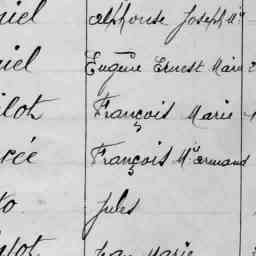 niel Alphonse Joseph Mie
niel Eugène Ernest Marie
ilot François Marie
rée François M. Armand
to Jules
Jean Marie